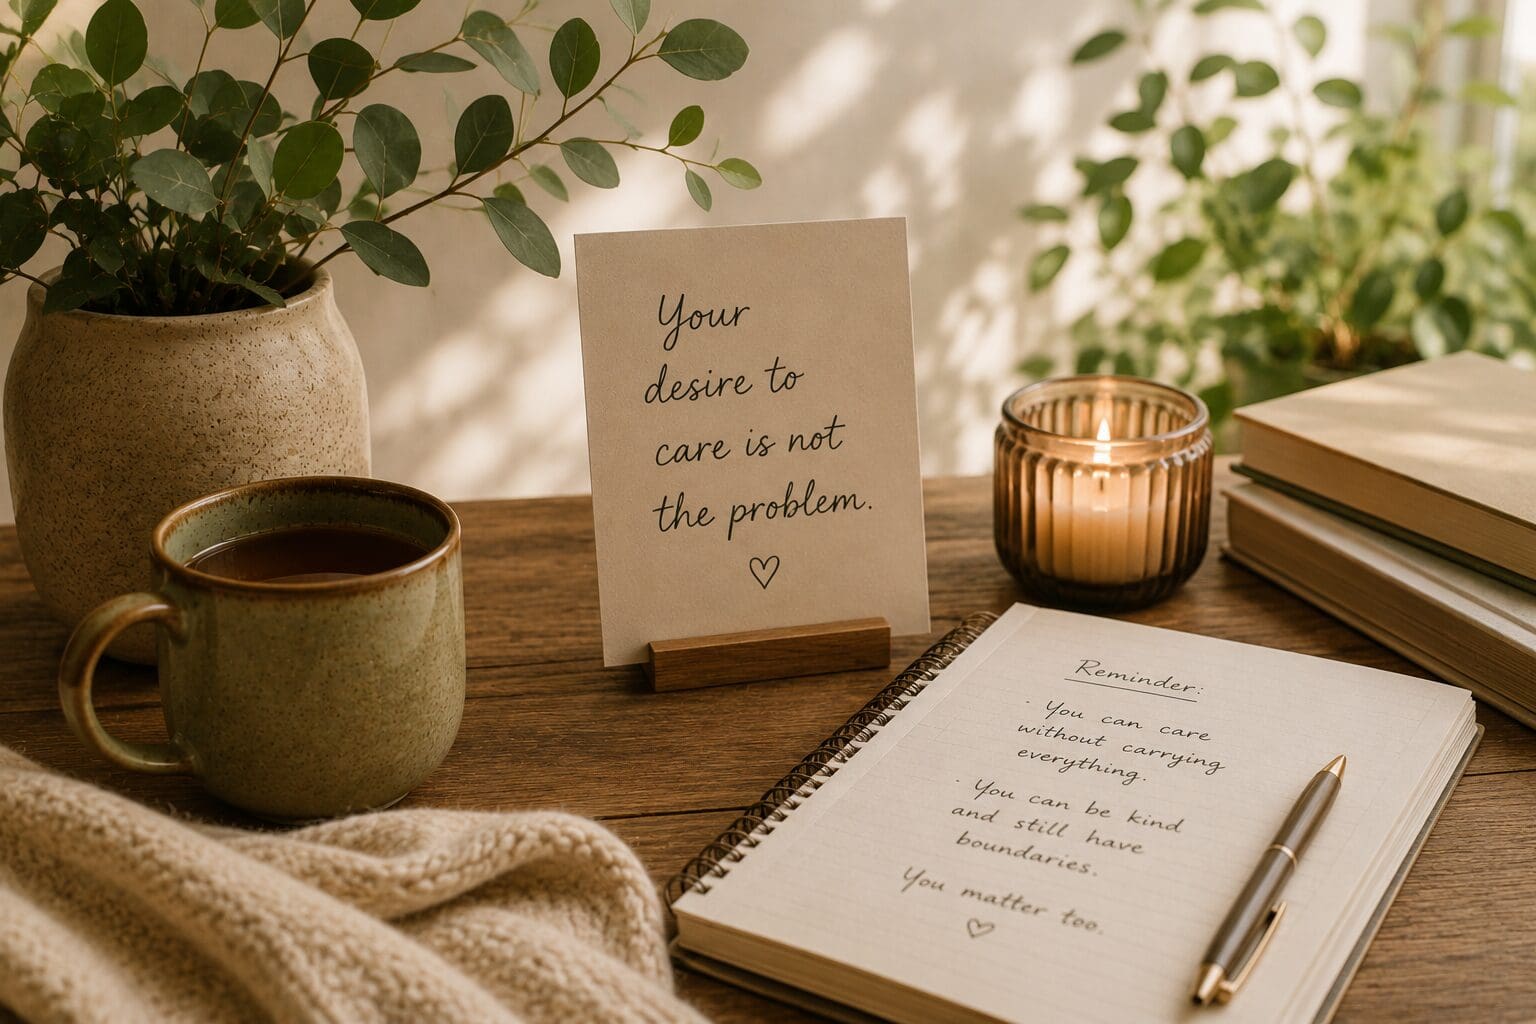 Your
desire to
care is not
the problem.
Reminder:
· You can care
without carrying
everything.
· You can be kind
and still have
boundaries.
You matter too.